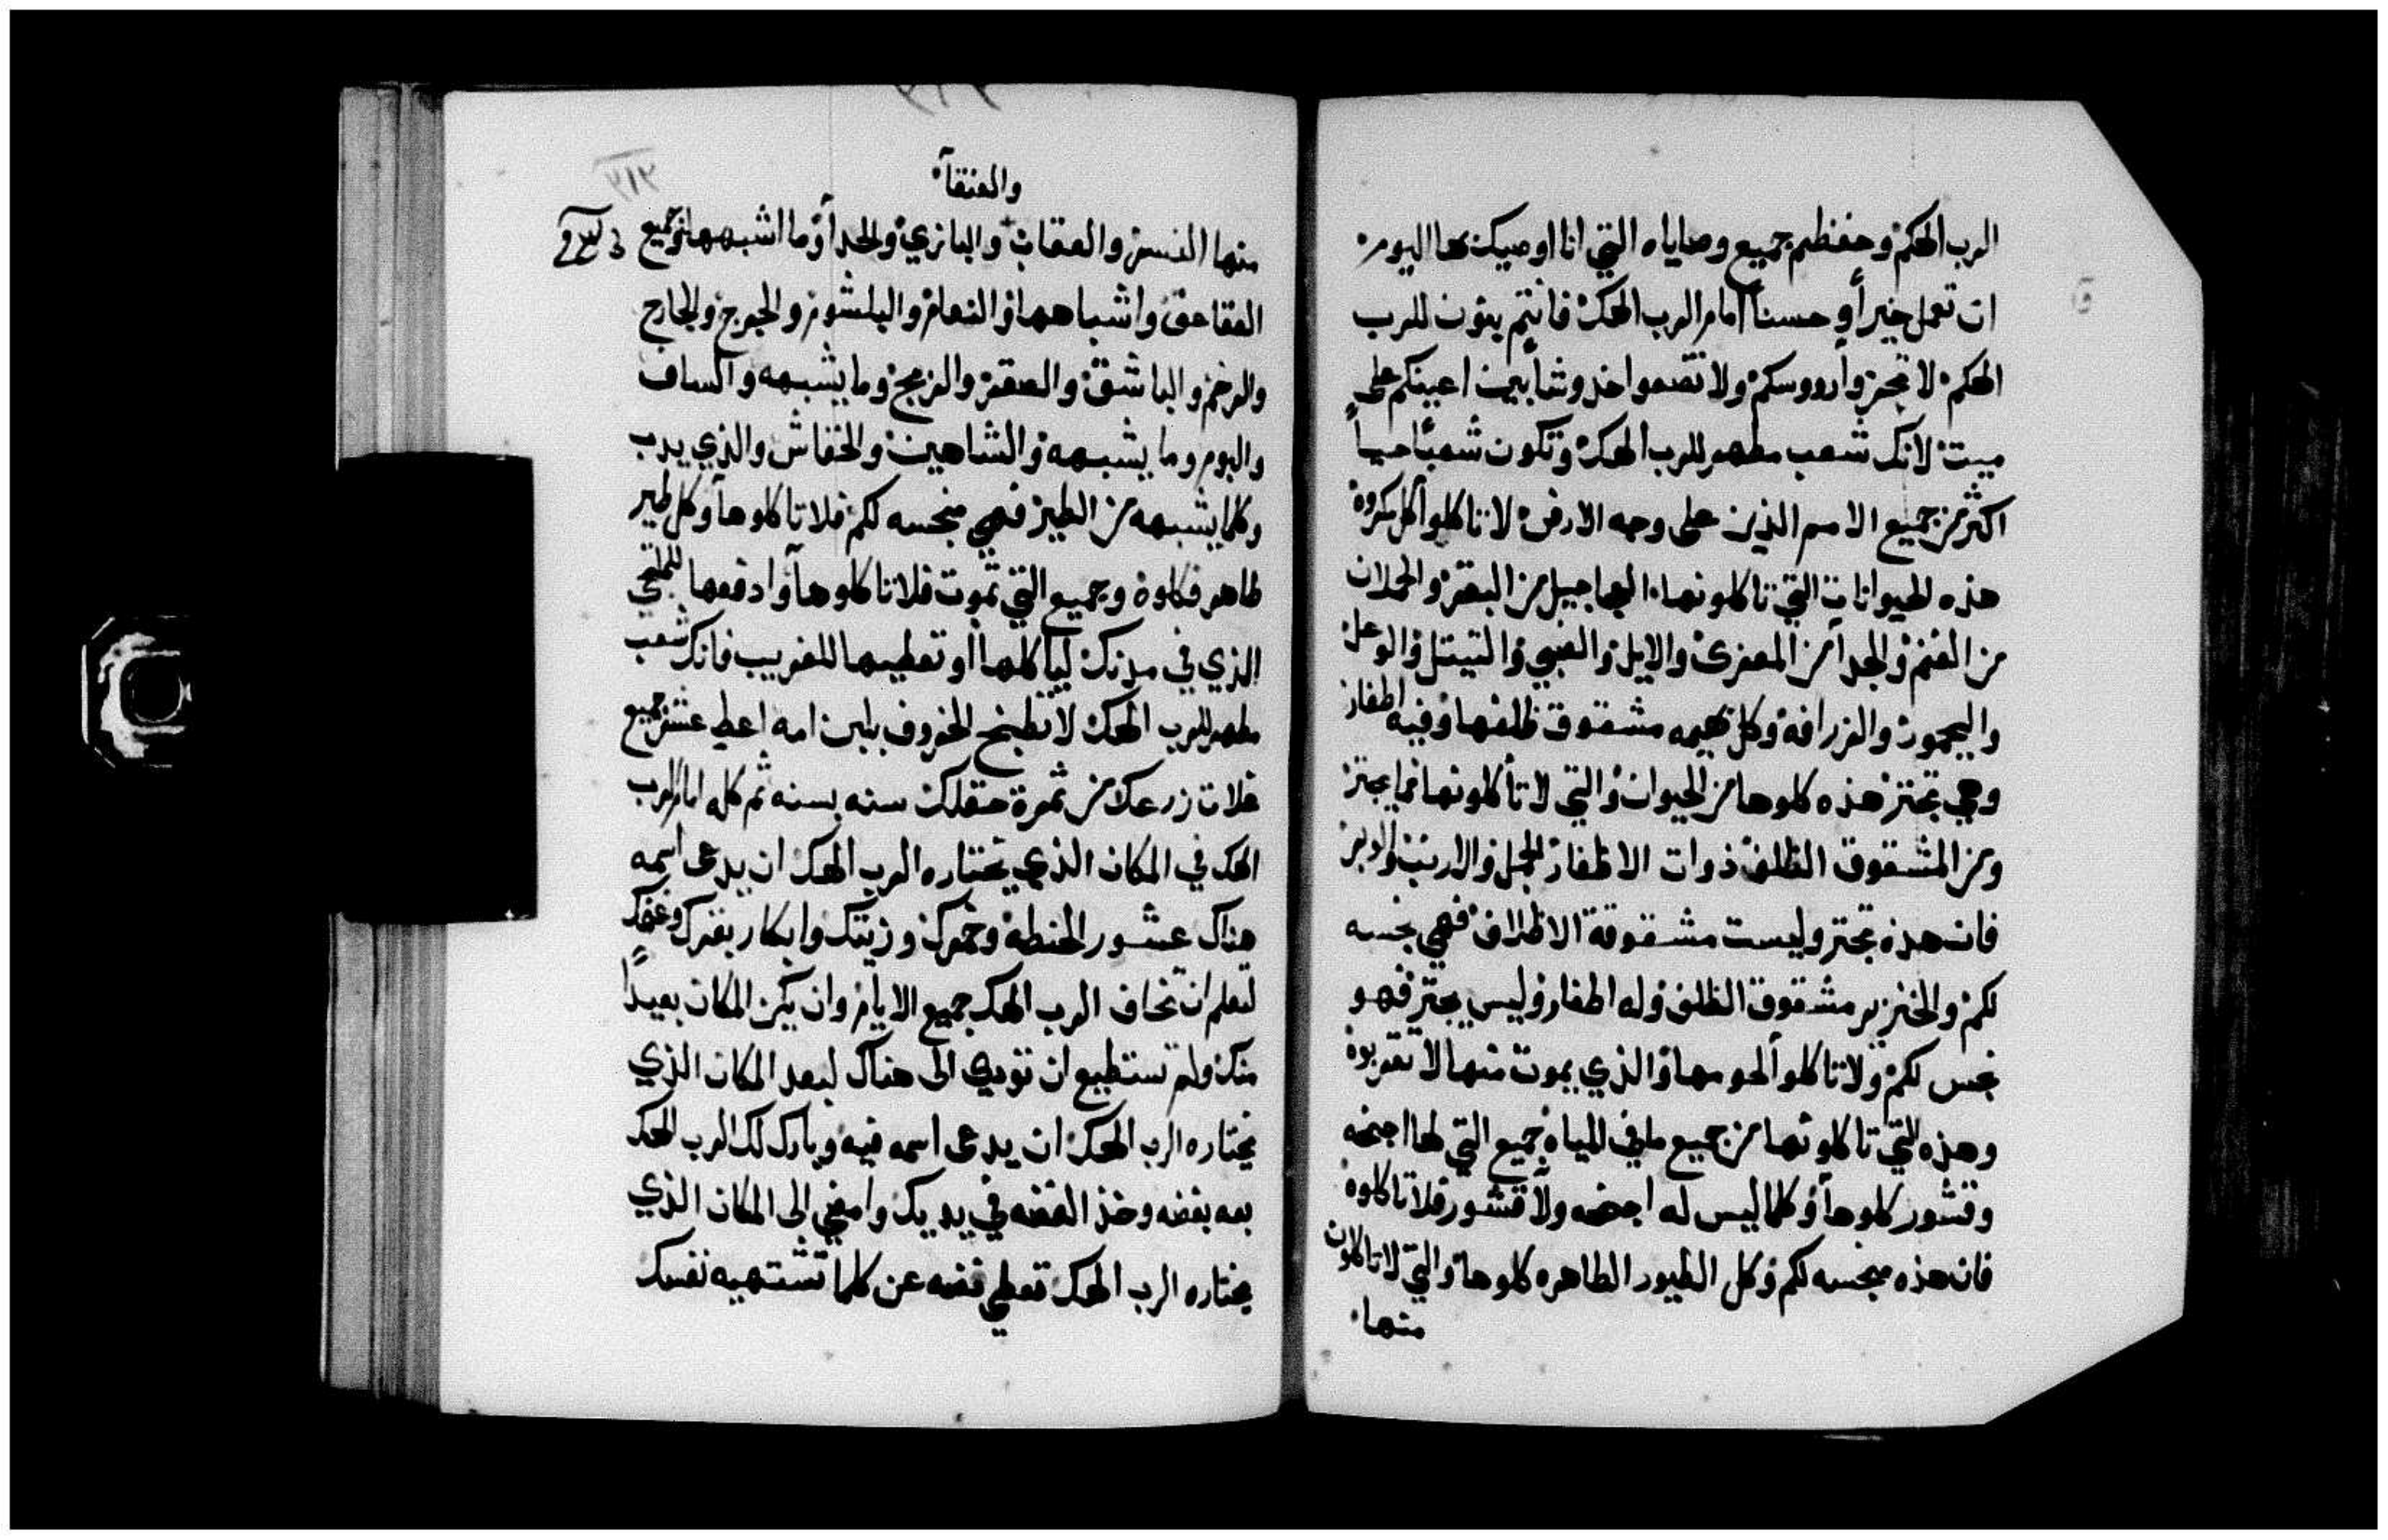 الرب الهكم وحفظتم جميع وصاياه التي انا اوصيك بها اليوم
ان تعمل خيراً وحسناً امام الرب الهك فانتم بنون للرب
الهكم لا تحزوا رووسكم ولا تضعوا خدوشا بين اعينكم على
ميت لانك شعب مطهر للرب الهك وتكون شعبًا حيياً
اكثر من جميع الامم الذين على وجه الارض لا تاكلوا كل مكروه
هذه الحيوانات التي تاكلونها العجاجيل من البقر والحملان
من الغنم والجدا من المعزى والايل والظبي والتيتل والوعل
واليحمور والزرافه وكل بهيمه مشقوق ظلفها وفيه اظفار
وهي تجتر هذه كلوها من الحيوان والتي لا تأكلونها مما يجتر
ومن المشقوق الظلف ذوات الاظفار الجمل والارنب والوبر
فان هذه تجتر وليست مشقوقة الاظلاف فهي نجسه
لكم والخنزير مشقوق الظلف وله اظفار وليس يجتر فهو
نجس لكم ولا تاكلوا لحومها والذي يموت منها لا تقربوه
وهذه التي تاكلونها من جميع ما في المياه جميع التي لها اجنحه
وقشور كلوها وكلما ليس له اجنحه ولا قشور فلا تاكلوه
فان هذه منجسه لكم وكل الطيور الطاهره كلوها والتي لا تاكلون
منها
والعنقآ
منها النسر والعقاب والبازي والحدأ وما اشبهها وجميع
العقاعق واشباهها والنعام والبلشوم والجرج والجارح
والرخم والباشق والصقر والزمج وما يشبهه والساف
والبوم وما يشبهه والشاهين والخفاش والذي يدب
وكلما يشبهه من الطير فهي منجسه لكم فلا تاكلوها وكل طير
طاهر فكلوه وجميع التي تموت فلا تاكلوها وادفعها للملتجي
الذي في مدنك لياكلها او تعطيها للغريب فانك شعب
مطهر للرب الهك لا تطبخ الخروف بلبن امه اعط عشر جميع
غلات زرعك من ثمرة حقلك سنه بسنه ثم كله امام الرب
الهك في المكان الذي يختاره الرب الهك ان يدعى اسمه
هناك عشور الحنطة وخمرك وزيتك وابكار بقرك وغنمك
لتعلم ان تخاف الرب الهك جميع الايام وان يكن المكان بعيداً
منك ولم تستطيع ان تودي الى هناك لبعد المكان الذي
يختاره الرب الهك ان يدعى اسمه فيه وبارك لك الرب الهك
بعه بفضه وخذ الفضه في يديك وامضي الى المكان الذي
يختاره الرب الهك تعطي فضه عن كلما تشتهيه نفسك